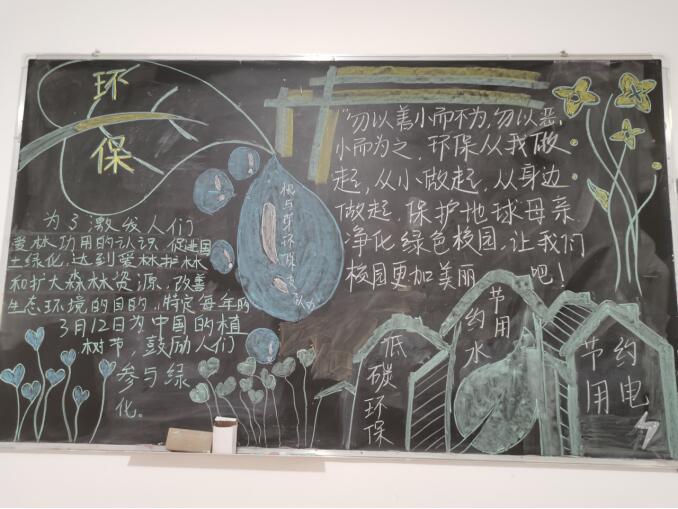 环
保
为了激发人们
爱林功用的认识促进国
土绿化,达到爱林护林
和扩大森林资源、改善
生态环境的目的,特定每年的
3月12日为中国的植
树节,鼓励人们
参与绿
化。
"勿以善小而不为,勿以恶
小而为之,环保从我做
起,从小做起,从身边
做起,保护地球母亲
净化绿色校园,让我们
校园更加美丽 吧!
低碳环保
节约用水
节约用电